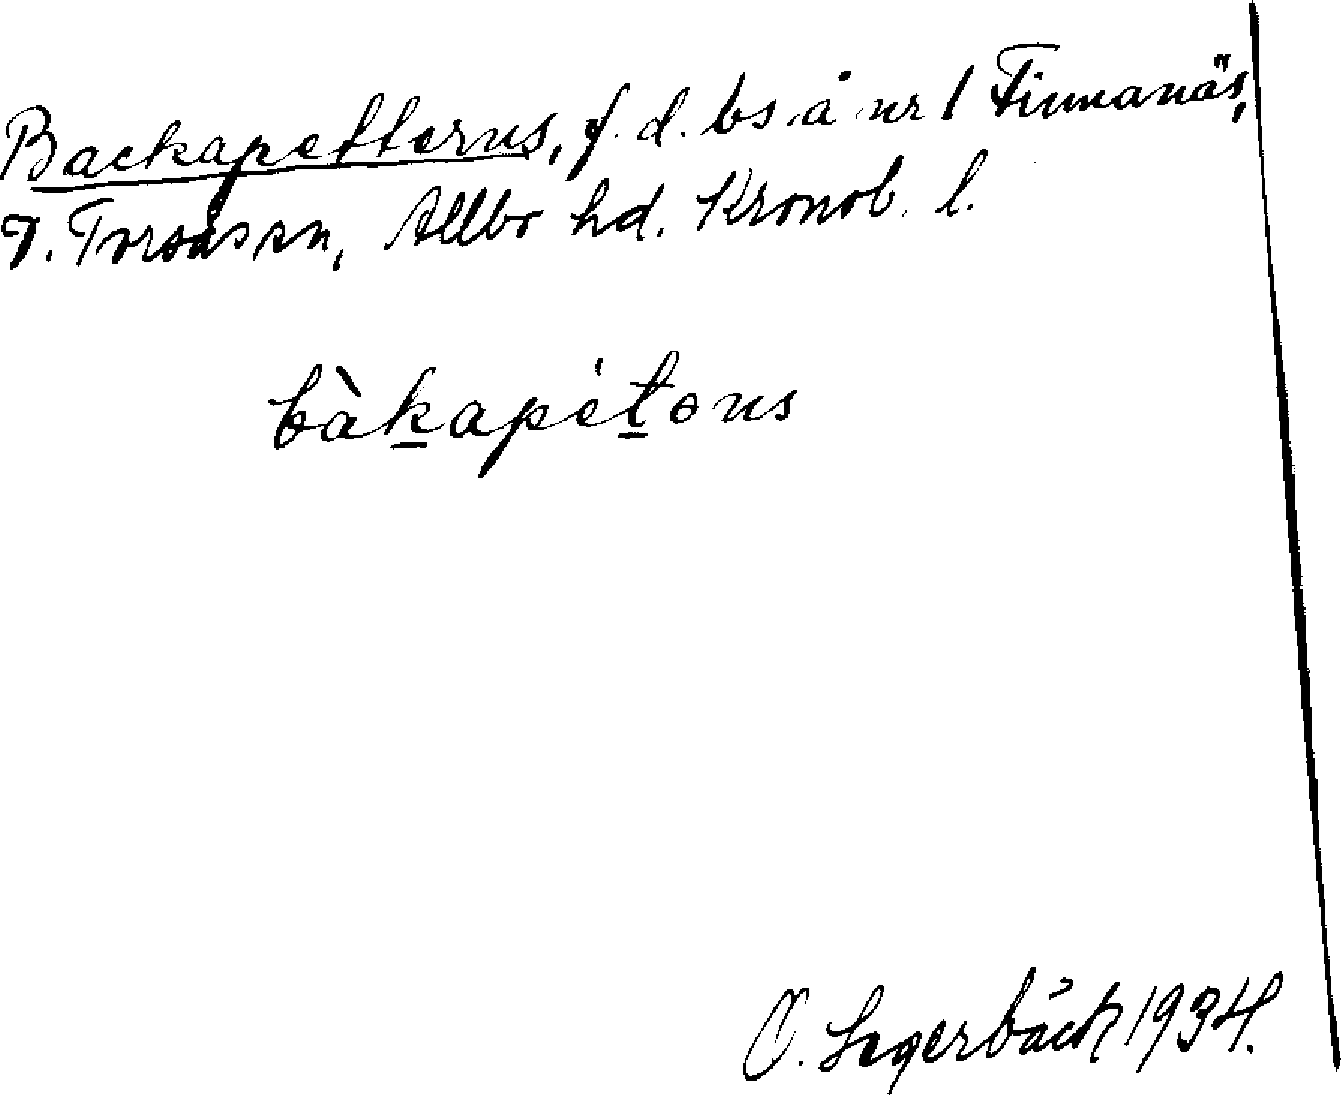 Backapetterns, f. d. bs å nr 1 Finnanäs,
V. Torsås sn, Allbo hd. Kronob. l.
bàkapét̲ɵns
O. Segerbäck 1934.